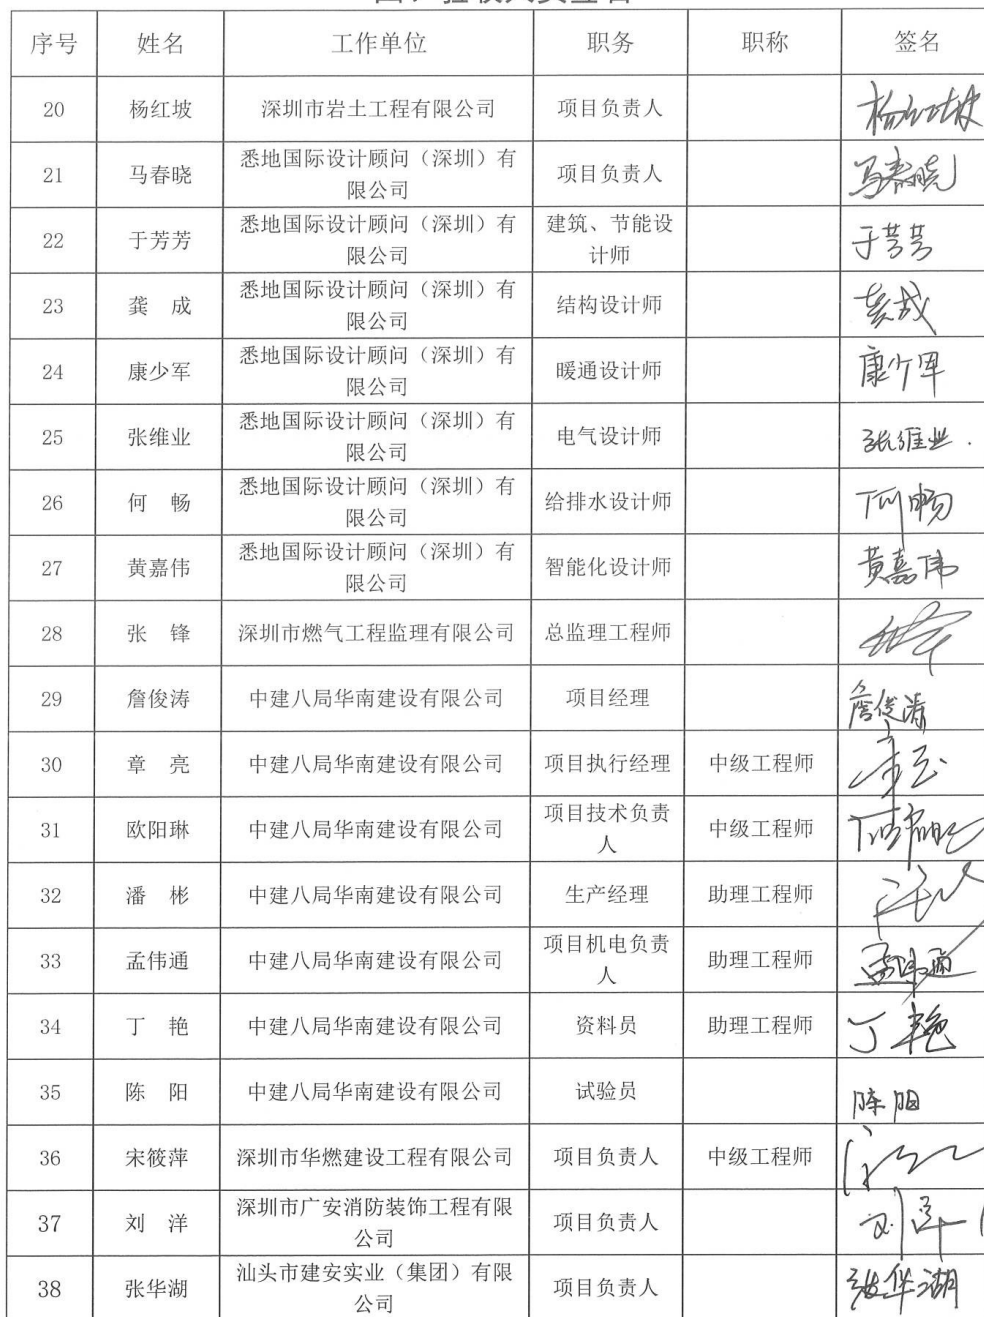 序号 姓名 工作单位 职务 职称 签名
20 杨红坡 深圳市岩土工程有限公司 项目负责人 杨红坡
21 马春晓 悉地国际设计顾问（深圳）有
限公司 项目负责人 马春晓
22 于芳芳 悉地国际设计顾问（深圳）有
限公司 建筑、节能设
计师 于芳芳
23 龚 成 悉地国际设计顾问（深圳）有
限公司 结构设计师 龚成
24 康少军 悉地国际设计顾问（深圳）有
限公司 暖通设计师 康少军
25 张维业 悉地国际设计顾问（深圳）有
限公司 电气设计师 张维业
26 何 畅 悉地国际设计顾问（深圳）有
限公司 给排水设计师 何畅
27 黄嘉伟 悉地国际设计顾问（深圳）有
限公司 智能化设计师 黄嘉伟
28 张 锋 深圳市燃气工程监理有限公司 总监理工程师
29 詹俊涛 中建八局华南建设有限公司 项目经理 詹俊涛
30 章 亮 中建八局华南建设有限公司 项目执行经理 中级工程师
31 欧阳琳 中建八局华南建设有限公司 项目技术负责
人 中级工程师
32 潘 彬 中建八局华南建设有限公司 生产经理 助理工程师
33 孟伟通 中建八局华南建设有限公司 项目机电负责
人 助理工程师 孟伟通
34 丁 艳 中建八局华南建设有限公司 资料员 助理工程师 丁艳
35 陈 阳 中建八局华南建设有限公司 试验员 陈阳
36 宋筱萍 深圳市华燃建设工程有限公司 项目负责人 中级工程师
37 刘 洋 深圳市广安消防装饰工程有限
公司 项目负责人 刘洋
38 张华湖 汕头市建安实业（集团）有限
公司 项目负责人 张华湖